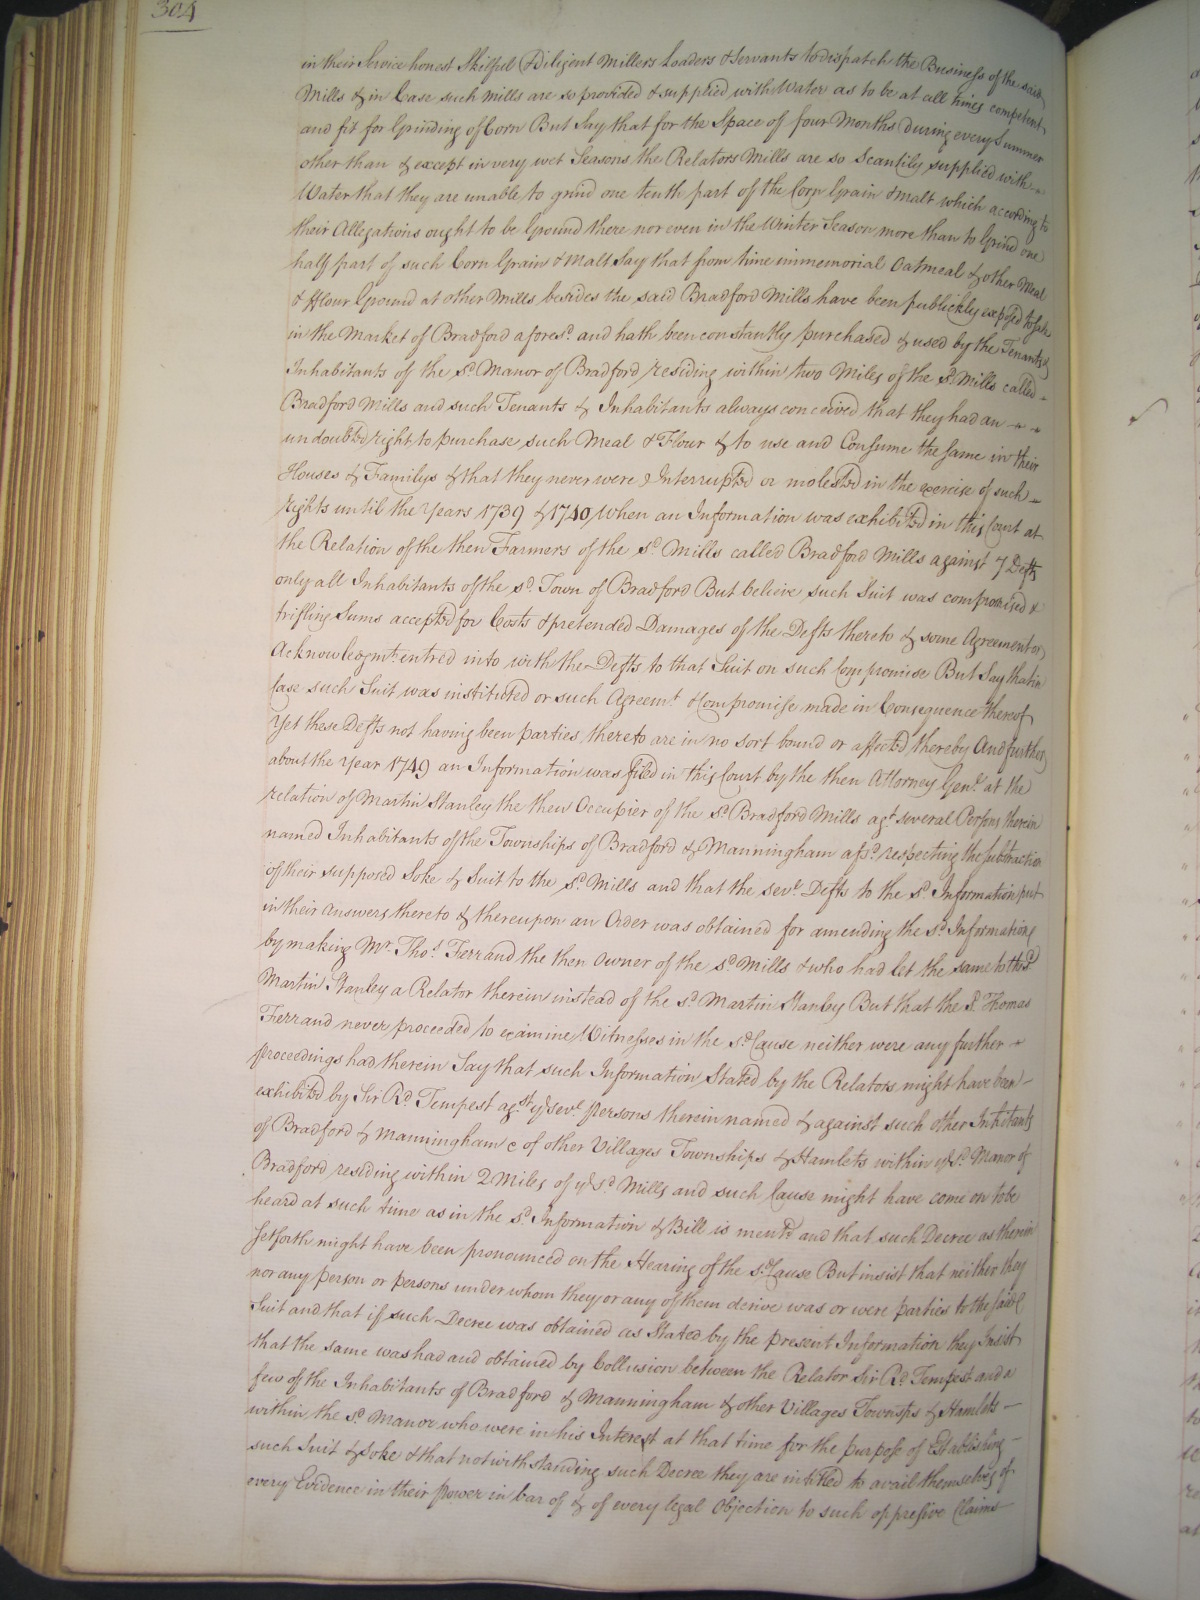 304
in their Service honest Skilful & Diligent Millers Loaders & Servants to dispatch the Business of the said
Mills & in Case such Mills are so provided & supplied with Water as to be at all times competent
and fit for Grinding of Corn But Say that for the Space of four Months during every Summer
other than & except in very wet Seasons the Relators Mills are so Scantily supplied with
Water that they are unable to grind one tenth part of the Corn Grain & Malt which according to
their Allegations ought to be Ground there nor even in the Winter Season more than to Grind one
half part of such Corn Grain & Malt Say that from time immemorial Oatmeal & other Meal
& fflour Ground at other Mills besides the said Bradford Mills have been publickly exposed to sale
in the Market of Bradford afores.d and hath been constantly purchased & used by the Tenants &
Inhabitants of the s.d Manor of Bradford residing within two Miles of the s.d Mills called
Bradford Mills and such Tenants & Inhabitants always conceived that they had an
undoubted right to purchase such Meal & Flour & to use and Consume the same in their
Houses & Familys & that they never were Interrupted or molested in the exercise of such
rights until the Years 1739 & 1740 when an Information was exhibited in this Court at
the Relation of the then Farmers of the s.d Mills called Bradford Mills against 7 Defts
only all Inhabitants of the s.d Town of Bradford But believe such Suit was compromised &
trifling Sums accepted for Costs & pretended Damages of the Defts thereto & some Agreement or
Acknowledgmt. entred into with the Defts to that Suit on such Compromise But Say that in
Case such Suit was instituted or such Agreemt. & Compromise made in Consequence thereof
Yet these Defts not having been parties thereto are in no sort bound or affected thereby And further
about the Year 1749 an Information was filed in this Court by the then Attorney Gen.l at the
relation of Martin Stanley the then Occupier of the s.d Bradford Mills ag.t several Persons therein
named Inhabitants of the Townships of Bradford & Manningham afs.d respecting the subtraction
of their supposed Soke & Suit to the s.d Mills and that the sev.l Defts to the s.d Information put
in their Answers thereto & thereupon an Order was obtained for amending the s.d Information
by making Mr. Tho.s Ferrand the then Owner of the s.d Mills & who had let the same to the s.d
Martin Stanley a Relator therein instead of the s.d Martin Stanley But that the s.d Thomas
Ferrand never proceeded to examine Witnesses in the s.d Cause neither were any further
proceedings had therein Say that such Information Stated by the Relators might have been
exhibited by Sir R.d Tempest ag.st ye sev.l persons therein named & against such other Inhitants
of Bradford & Manningham & of other Villages Townships & Hamlets within ye s.d Manor of
Bradford residing within 2 Miles of ye s.d Mills and such Cause might have come on to be
heard at such time as in the s.d Information & Bill is ment.d and that such Decree as therein
Setforth might have been pronounced on the Hearing of the s.d Cause But insist that neither they
nor any person or persons under whom they or any of them derive was or were parties to the said
Suit and that if such Decree was obtained as Stated by the present Information they Insist
that the same was had and obtained by Collusion between the Relator Sir R.d Tempest and a
few of the Inhabitants of Bradford & Manningham & other Villages Townsps & Hamlets
within the s.d Manor who were in his Interest at that time for the purpose of Establishing
such Suit & Soke & that notwithstanding such Decree they are intitled to avail themselves of
every Evidence in their power in bar of & of every legal Objection to such oppressive Claims